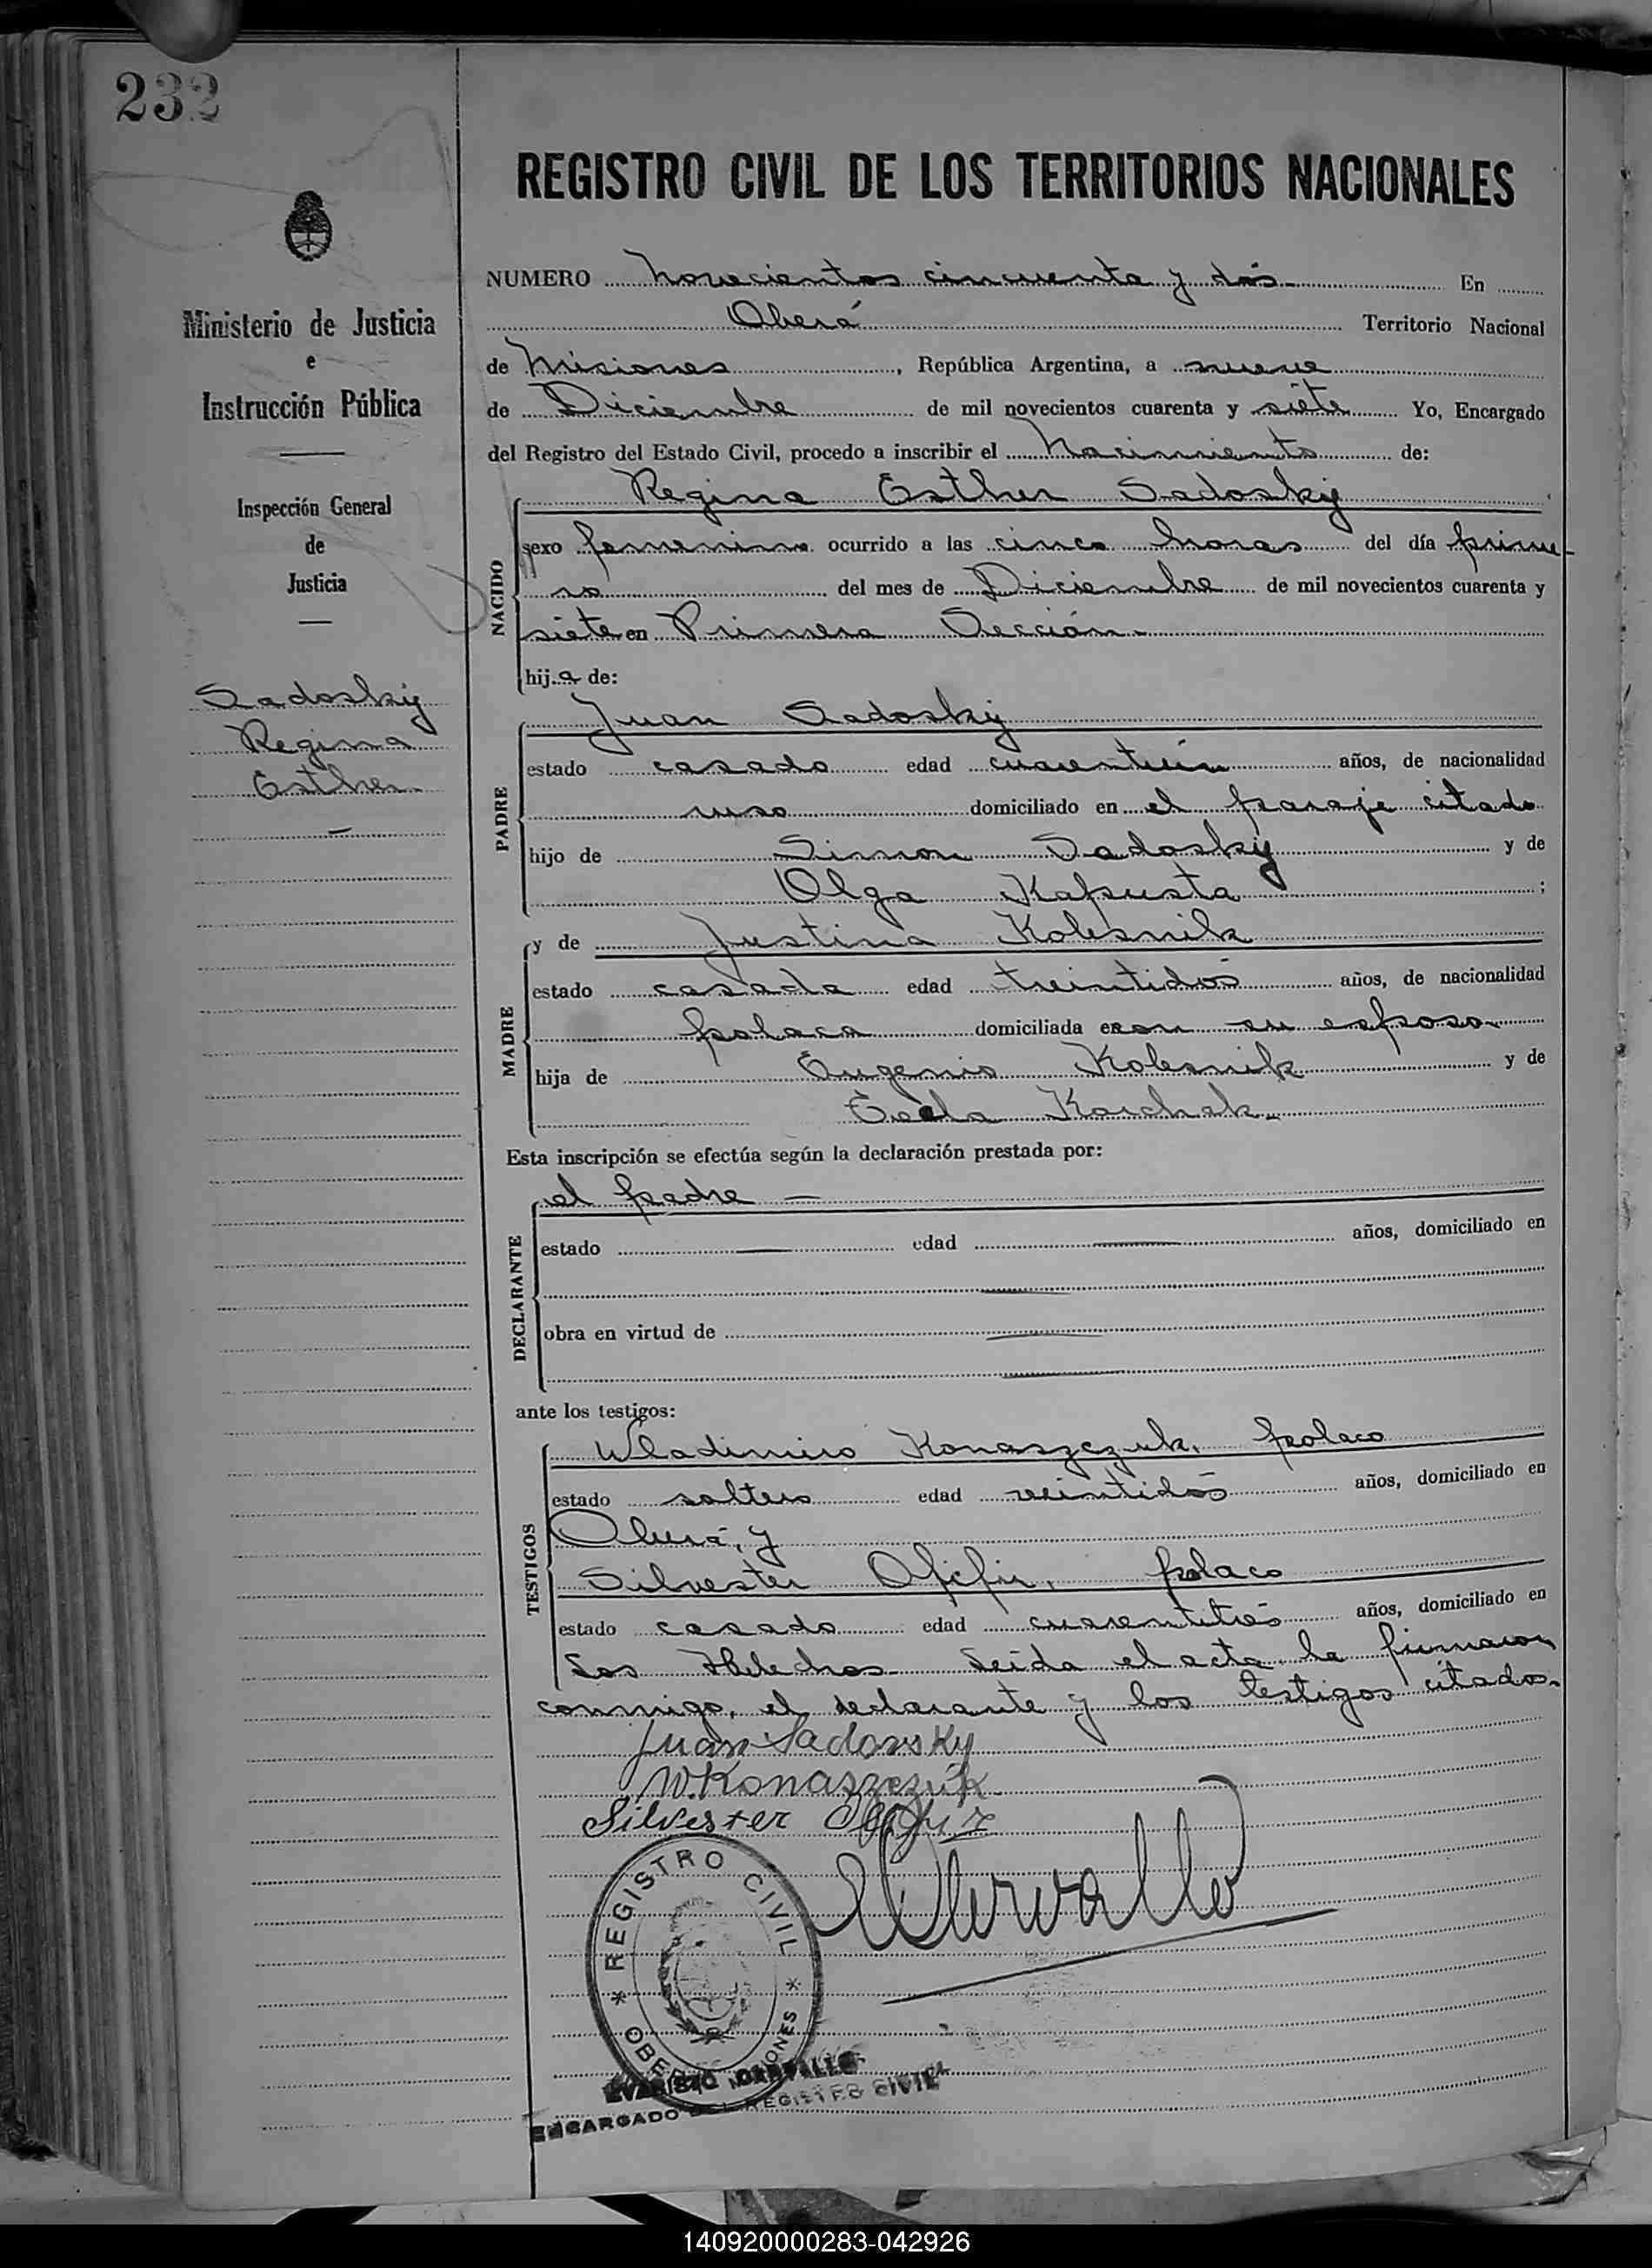 232
REGISTRO CIVIL DE LOS TERRITORIOS NACIONALES
Ministerio de Justicia
e
Instrucción Pública
Inspección General
de
Justicia
Sadosky
Regina
Esther
NUMERO Novecientos cincuenta y dós En
Oberá Territorio Nacional
de Misiones, República Argentina, a nueve
de Diciembre de mil novecientos cuarenta y siete Yo, Encargado
del Registro del Estado Civil, procedo a inscribir el Nacimiento de:
NACIDO
Regina Esther Sadosky
sexo femenino ocurrido a las cinco horas del día prime-
ro del mes de Diciembre de mil novecientos cuarenta y
siete en Primera Sección.
hija de:
PADRE
Juan Sadosky
estado casado edad cuarentiún años, de nacionalidad
ruso domiciliado en el paraje citado
hijo de Simon Sadosky y de
Olga Kapusta;
MADRE
y de Justina Kolesnik
estado casada edad treintidós años, de nacionalidad
polaca domiciliada con su esposo
hija de Eugenio Kolesnik y de
Korchak.
Esta inscripción se efectúa según la declaración prestada por:
DECLARANTE
el padre —
estado — edad — años, domiciliado en
obra en virtud de —
ante los testigos:
TESTIGOS
Wladimiro Konaszczuk, polaco
estado soltero edad veintidós años, domiciliado en
Oberá, y
Silvester polaco
estado casado edad cuarentitrés años, domiciliado en
Los Helechos. Leida el acta la firmaron
conmigo, el declarante y los testigos citados.
Juan Sadowsky
W. Konaszczuk
Silvester
REGISTRO CIVIL
OBERÁ MISIONES
EVARISTO CARVALLO
ENCARGADO DEL REGISTRO CIVIL
140920000283-042926